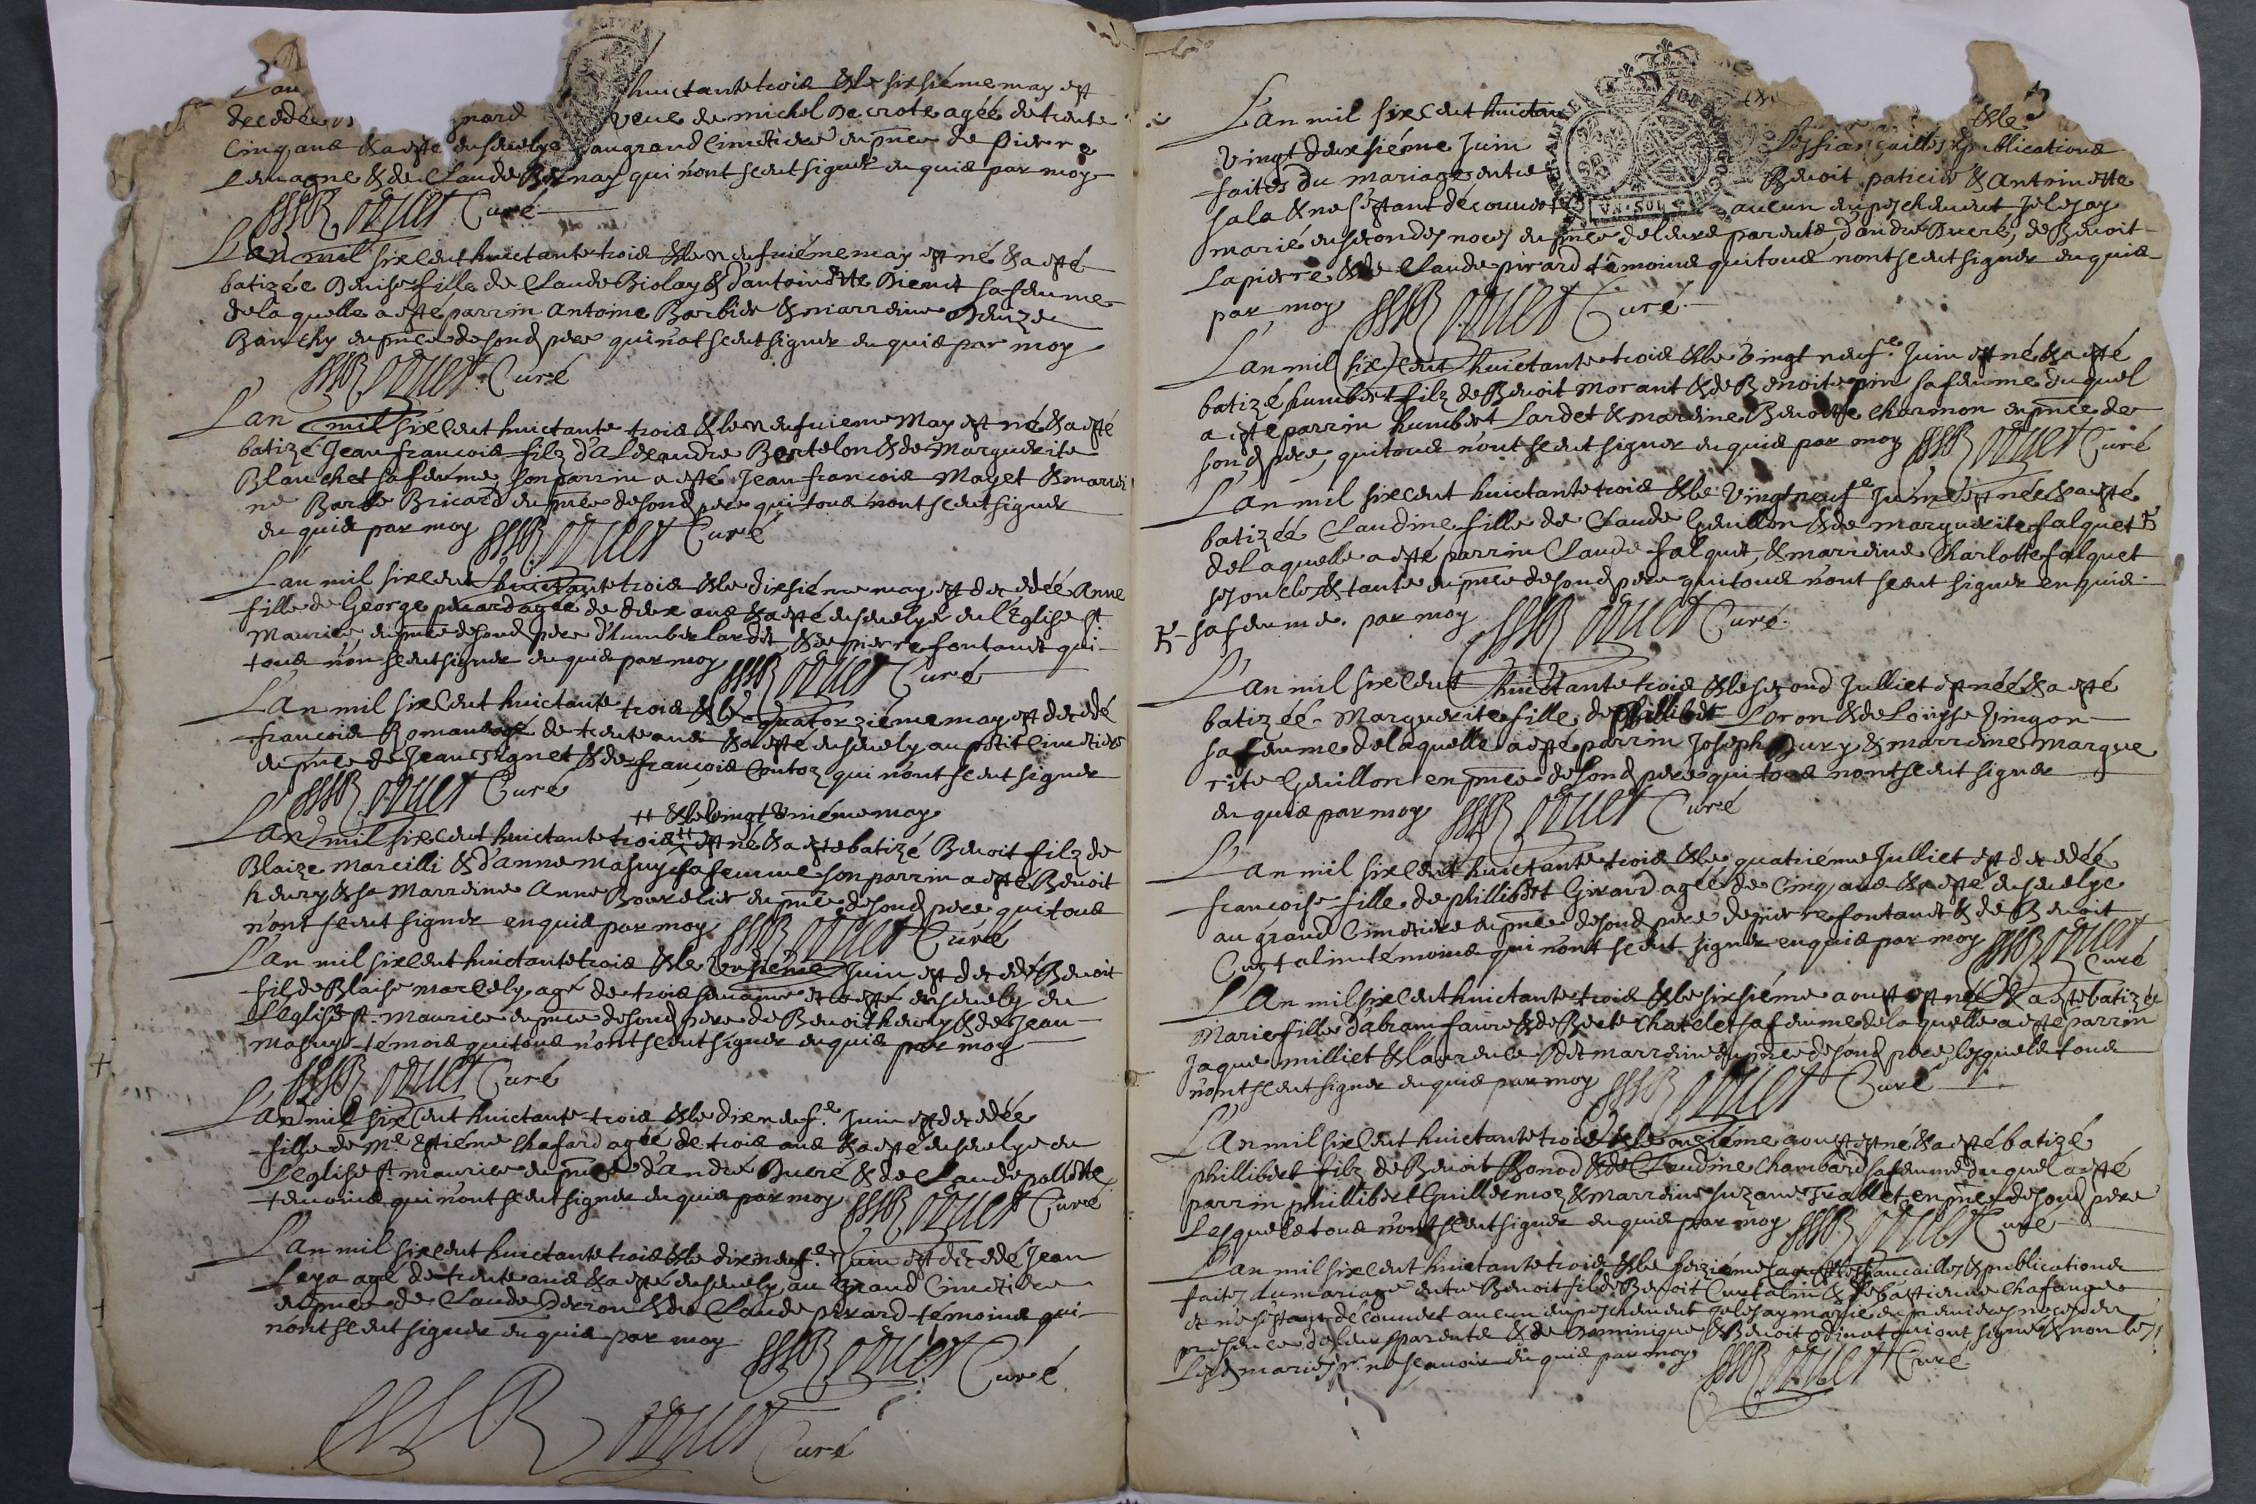 Lan huictante trois & le sixsiéme may est
decedée nard veue de michel Decrote agéé de trente
Cinq ans & a esté ensevelye au grand Cimetiere en pnce de Pierre
Lemagne & de Claude Bernay qui n'ont sceut signer en quis par moy
Curé
L'an mil sixcent huictante trois & le neufuiéme may est né & a esté
batizée Denise fille de Claude Biolay & d'antoinette Dienit sa femme
de la quelle a esté parrin Antoine Barbier & marreine Denize
Banchy en pnce de sond pere qui n'at sceut signer en quis par moy
Curé
L'an mil sixcent huictante trois & le neufuieme May est né & a esté
batizé Jean francois filz d'Alexandre Bertelon & de Marguerite
Blanchet sa femme son parrin a esté Jean francois Mayet & marrei
ne Barbe Bricard en pnce de sond pere qui tous n'ont sceut signer
en quis par moy Curé
L'an mil sixcent huictante trois & le dixsiéme may est decedéé Anne
fille de George picard agéé de deux ans & a esté ensevelye en l'Eglise St
Maurice en pnce de sond pere d'humber lardet & de pierre fontanet qui
tous n'on sceut signer en quis par moy Curé
L'an mil sixcent huictante trois & le quatorziéme may est decedé
francois Roman agé de trente ans & a esté ensevely au petit Cimetiere
en pnce de Jean Tignet & de francois Contoz qui n'ont sceut signer
Curé
++ & le vingt & uniéme may
L'an mil sixcent huictante trois ++ est né & a esté batizé Benoit filz de
Blaize Marcilli & d'anne Masuy sa femme son parrin a esté Benoit
henry & sa Marreine Anne Bourelier en pnce de sond pere qui tous
n'ont sceut signer en quis par moy Curé
L'an mil sixcent huictante trois & le unsiéme Juin est decedé Benoit
filz de Blaise marcely agé de trois semaine et a esté ensevely en
l'eglise St maurice en pnce de sond pere de Benoit henry & de Jean
masuy témois qui tous n'ont sceut signer en quis par moy
Curé
L'an mil sixcent huictante trois & le dixneufe Juin est decedée
fille de Me Estiéne Chafard agéé de trois ans & a esté ensevelye en
l'eglise St maurice en pnce d'André Ducré & de Claude pollette
temoins qui n'ont sceut signer en quis par moy Curé
L'an mil sixcent huictante trois & le dixneufe Juin est decedé Jean
Leya agé de trente ans & a esté ensevely au grand Cimetiere
en pnce de Claude & de Claude pirard témoins qui
n'ont sceut signer en quis par moy
Curé
Curé
L'an mil sixcent huictan & le
vingt deuxsiéme Juin Les fiançailles & publications
faites du mariage entre Benoit paticier & Antoinette
sala & ne s'estant découvert aucun empeschement Je les ay
marié en secondes noces en pnce de leurs parents, d'andré Ducré, de Benoit
Lapierre & de Claude pirard témoins qui tous n'ont sceut signer en quis
par moy Curé
L'an mil sixcent huictante trois & le vingt neufe Juin est né & a esté
batizé humbert filz de Benoit Morant & de Benoite pin sa femme duquel
a esté parrin humbert Lardet & mareine Benoitte Charmon en pnce de
sond pere, qui tous n'ont sceut signer en quis par moy Curé
L'an mil sixcent huictante trois & le vingt neufe Juin est néé & a esté
batizéé Claudine fille de Claude Guillon & de marguerite falquet
de laquelle a esté parrin Claude falquet, & marreine Charlotte falquet
ses oncles & tante en pnce de sond pere qui tous n'ont sceut signer en quis
sa femme. par moy Curé
L'an mil sixcent huictante trois & le segond Julliet est néé & a esté
batizéé Marguerite fille de phillibert Loron & de Loüyse Jingon
sa femme de laquelle a esté parrin Joseph Dury & marreine Margue
rite Guillon en pnce de sond pere qui tous n'ont sceut signer
en quis par moy Curé
L'an mil sixcent huictante trois & le quatriéme Julliet est decedéé
francoise fille de phillibert Girard agéé de Cinq ans & a esté ensevelye
au grand Cimetiere en pnce de sond pere de pierre fontanet & de Benoit
Curtalin témoins qui n'ont sceut signer en quis par moy
Curé
L'An mil sixcent huictante trois & le sixsiéme aoust est néé & a esté batizée
Marie fille d'abram faure & de Berte Chatelet sa femme de la quelle a esté parrin
Jaque milliet & laurence marreine en pnce de sond pere lesquels tous
n'ont sceut signer en quis par moy Curé
L'An mil sixcent huictante trois & le onziéme aoust est né & a esté batizé
phillibert filz de Benoit Bonod & de Claudine Chambard sa femme duquel a esté
parrin phillibert Guillermoz & marreine Suzane Trablet en pnce de sond pere
Lesquels tous n'ont sceut signer en quis par moy Curé
L'an mil sixcent huictante trois & le seiziéme aoust les fiancailles & publications
faites du mariage entre Benoit fil de Benoit Curtalin & Sebastienne Chafange
et ne s'estant découvert aucun empeschement Je les ay marié en premieres noces en
presence de leurs parents & de Dominique & Benoit qui ont signés & non les
Lesd mariés pr ne scavoir en quis par moy Curé